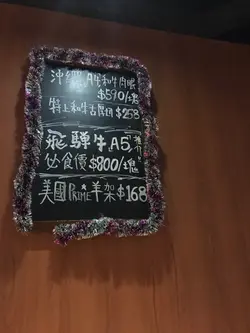 沖繩A4和牛肉眼
$590/塊
特上和牛古厝切 $258
飛驒牛A5
必食價$800/塊
美國PRIME羊架$168